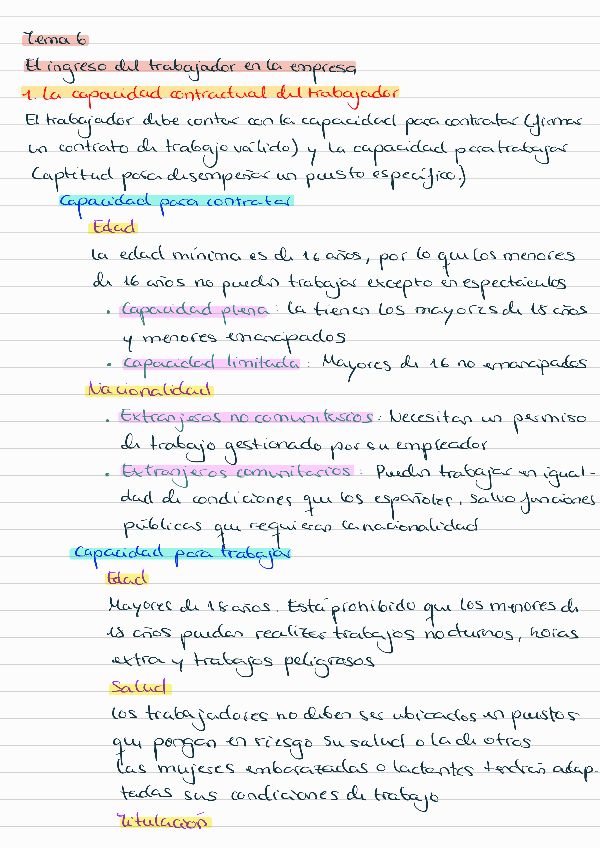 Tema 6
El ingreso del trabajador en la empresa
1. La capacidad contractual del trabajador
El trabajador debe contar con la capacidad para contratar (firmar
un contrato de trabajo válido) y la capacidad para trabajar
(aptitud para desempeñar un puesto específico.)
Capacidad para contratar
Edad
La edad mínima es de 16 años, por lo que los menores
de 16 años no pueden trabajar excepto en espectáculos
• Capacidad plena: La tienen los mayores de 18 años
y menores emancipados
• Capacidad limitada: Mayores de 16 no emancipados
Nacionalidad
• Extranjeros no comunitarios: Necesitan un permiso
de trabajo gestionado por su empleador
• Extranjeros comunitarios: Pueden trabajar en igual-
dad de condiciones que los españoles, salvo funciones
públicas que requieran la nacionalidad
Capacidad para trabajar
Edad
Mayores de 18 años. Está prohibido que los menores de
18 años puedan realizar trabajos nocturnos, horas
extra y trabajos peligrosos
Salud
Los trabajadores no deben ser ubicados en puestos
que pongan en riesgo su salud o la de otros
Las mujeres embarazadas o lactantes tendrán adap-
tadas sus condiciones de trabajo
Titulación